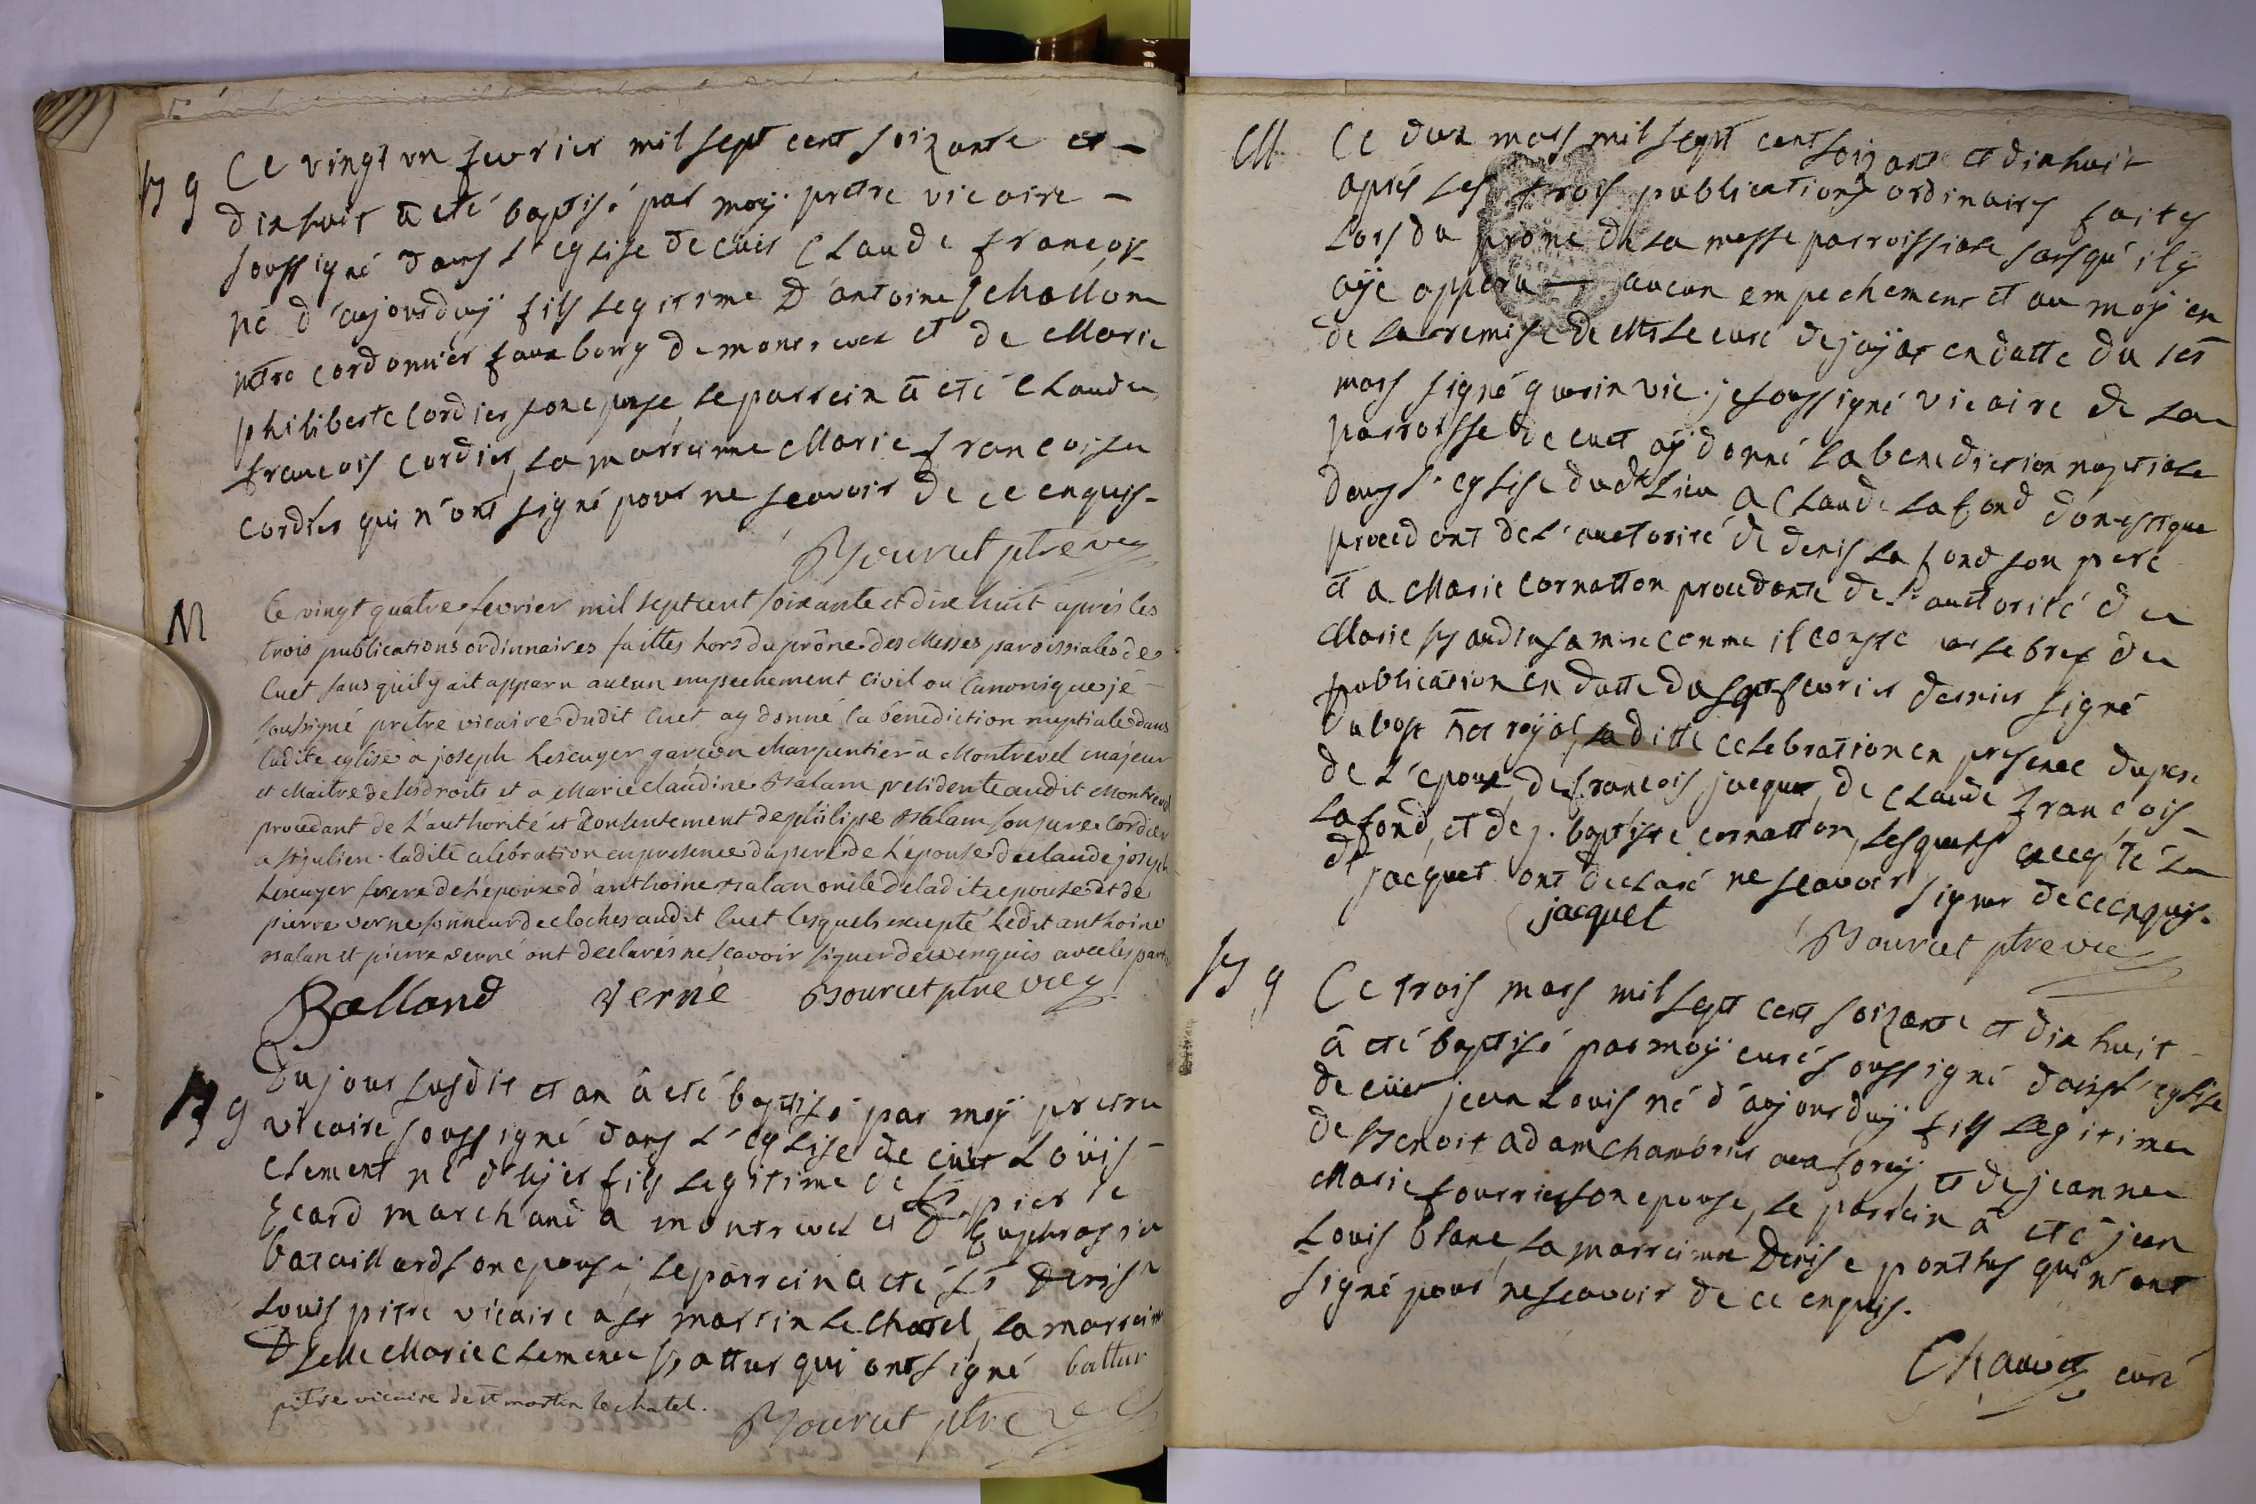 B g
Ce vingt un fevrier mil sept cent soixante et –
dix huit a eté baptisé par moy pretre vicaire –
soussigné dans l'eglise de cuet Claude françois
né d'aujourduy fils legitime d'antoine
mtre cordonnier faux bourg de montrevel et de Marie
philiberte Cordier son epouse le parrein a eté Claude
françois Cordier, la marreinne Marie françoise
cordier qui n'ont signé pour ne scavoir de ce enquis –
Bourcet ptre vic
M
Ce vingt quatre fevrier mil sept cent soixante et dix huit après les
trois publications ordinnaires faittes hors du prône des Messes paroissiales de
Cuet sans quil y ait apparu aucun empechement civil ou Canonique je –
soussigné pretre vicaire dudit Cuet ay donné la benediction nuptiale dans
ladite eglise a joseph Lescuyer garçon charpentier a Montrevel majeur
et Maitre de ses droits et a Marie claudine Balam residente audit Montrevel
procedant de l'authorité et Consentement de philipe Balam son pere Cordier
a st julien. ladite celebration en presence du pere de l'epouse de claude joseph
Lescuyer frere de l'epoux d'anthoine Balan oncle de ladite epouse et de
pierre verne sonneur de cloches audit Cuet lesquels excepté ledit anthoine
Balan et pierre verné ont declarés ne scavoir signer de ce enquis avec les parties
Balland verné Bourcet ptre vic
B g
Du jour susdit et an a eté baptisé par moy pretre
vicaire soussigné dans l'eglise de cuet Loüis –
Clement né d'hyer fils legitime de Sr pierre
Ecard marchand a montrevel et d'Euphrasie
bataillard son epouse le parrein a eté Sr Denis
Louis pitre vicaire a st martin le chatel, la marreine
Dselle Marie Clemence Battur qui ont signé battur
pitre vicaire de st martin le chatel.
Bourcet ptre vic
M
Ce deux mars mil sept cent soixante et dix huit
après les trois publications ordinaires faites
Lors du prone de la messe parroissiale sans qu'il y
aÿe apparu aucun empechement et au moyen
de la remise de Mr le curé de jayat en datte du 1er
mars signé guerin vic. je soussigné vicaire de la
parroisse de cuet aÿ donné la benediction nuptiale
dans l'eglise dudt lieu a Claude Lafond domestique
procedant de l'auctorité de denis Lafond son pere
et a Marie Cornatton procedante de l'auctorité de
Marie Baudin sa mere comme il conste par le bref de
publication en datte du sept fevrier dernier signé
Dubost not royal, la ditte celebration en presence du pere
de l'epoux, de françois jacquet, de Claude françois
Lafond, et de j. baptiste cornatton, lesquels excepté le
dt jacquet ont declaré ne scavoir signer de ce enquis.
jacquet
Bourcet ptre vic
B g
Ce trois mars mil sept cent soixante et dix huit
a eté baptisé par moy curé soussigné dans l'eglise
de cuet jean Louis né d'aujourduy fils legitime
de Benoit adam Chambrier aux forey, et de jeanne
Marie fourrier son epouse, le parrein a eté jean
Louis blanc, la marreinne Denise ponthus qui n'ont
signé pour ne scavoir de ce enquis.
Chauvet curé